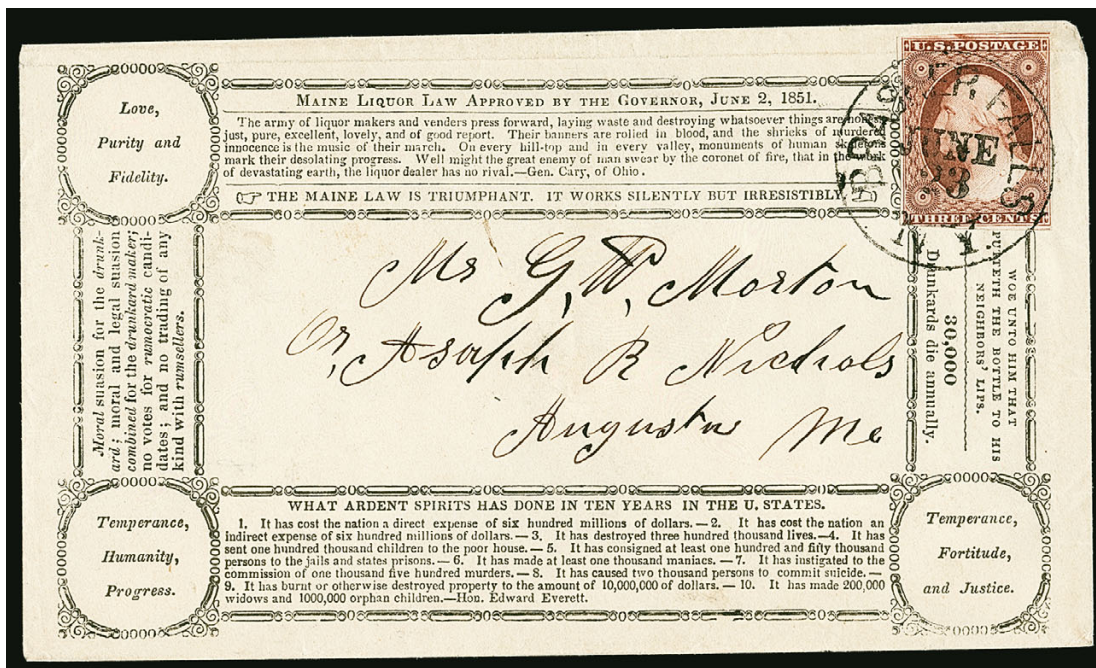 Love,
Purity and
Fidelity.
MAINE LIQUOR LAW APPROVED BY THE GOVERNOR, JUNE 2, 1851.
The army of liquor makers and venders press forward, laying waste and destroying whatsoever things are honest,
just, pure, excellent, lovely, and of good report. Their banners are rolled in blood, and the shrieks of murdered
innocence is the music of their march. On every hill-top and in every valley, monuments of human skeletons
mark their desolating progress. Well might the great enemy of man swear by the coronet of fire, that in the work
of devastating earth, the liquor dealer has no rival.—Gen. Cary, of Ohio.
☞ THE MAINE LAW IS TRIUMPHANT. IT WORKS SILENTLY BUT IRRESISTIBLY.
U.S. POSTAGE
THREE CENTS
JUNE
23
FALLS
N.Y
Moral suasion for the drunk-
ard; moral and legal suasion
combined for the drunkard maker;
no votes for rumocratic candi-
dates; and no trading of any
kind with rumsellers.
Mr G, W, Morton
Or, Asaph R Nichols
Augusta Me
WOE UNTO HIM THAT
PUTTETH THE BOTTLE TO HIS
NEIGHBORS' LIPS.
30,000
Drunkards die annually.
Temperance,
Humanity,
Progress.
WHAT ARDENT SPIRITS HAS DONE IN TEN YEARS IN THE U. STATES.
1. It has cost the nation a direct expense of six hundred millions of dollars.—2. It has cost the nation an
indirect expense of six hundred millions of dollars.—3. It has destroyed three hundred thousand lives.—4. It has
sent one hundred thousand children to the poor house.—5. It has consigned at least one hundred and fifty thousand
persons to the jails and states prisons.—6. It has made at least one thousand maniacs.—7. It has instigated to the
commission of one thousand five hundred murders.—8. It has caused two thousand persons to commit suicide.—
9. It has burnt or otherwise destroyed property to the amount of 10,000,000 of dollars.—10. It has made 200,000
widows and 1000,000 orphan children.—Hon. Edward Everett.
Temperance,
Fortitude,
and Justice.